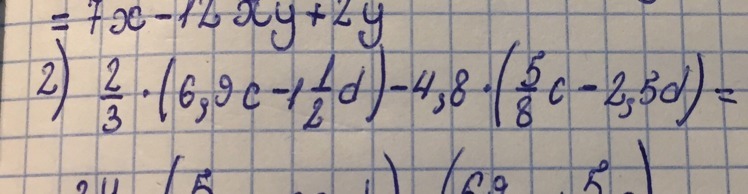 = 7x - 12xy + 2y
2) 2/3 · (6,9c - 1 1/2 d) - 4,8 · (5/8 c - 2,5d) =